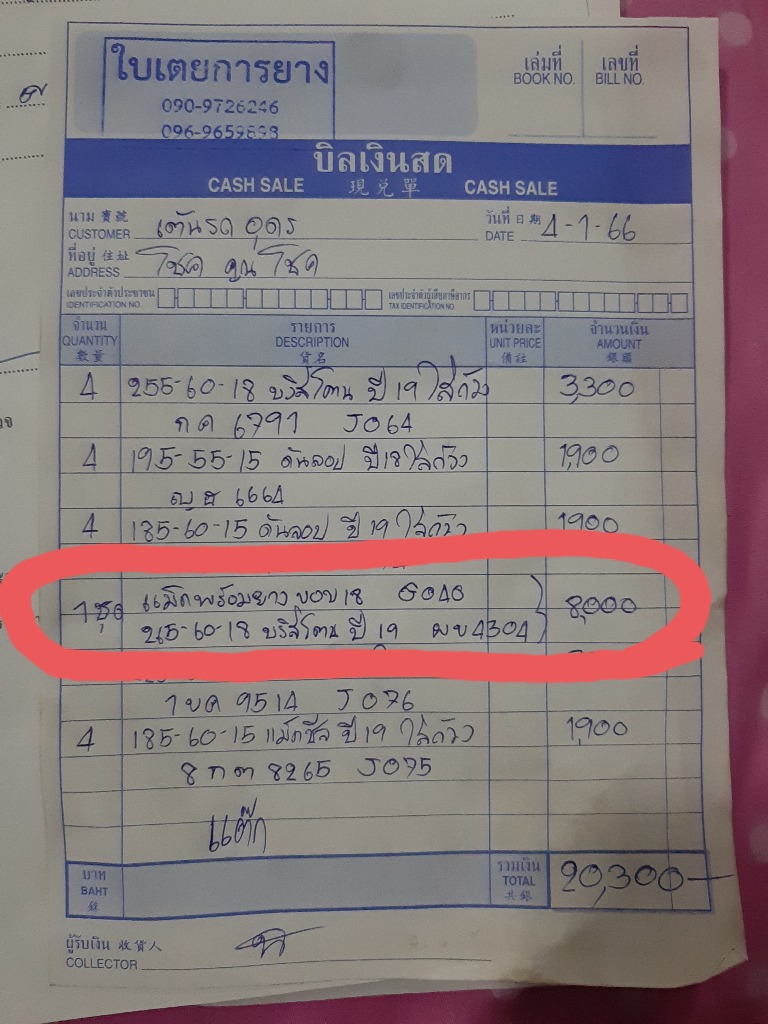 ใบเตยการยาง
090-9726246
096-9659898
เล่มที่ BOOK NO.
เลขที่ BILL NO.
บิลเงินสด
CASH SALE 現兌單 CASH SALE
นาม 寶號 CUSTOMER เต้นรถ อุดร
วันที่ 日期 DATE 4-1-66
ที่อยู่ 住址 ADDRESS โชค คูณ โชค
เลขประจำตัวประชาชน IDENTIFICATION NO.
เลขประจำตัวผู้เสียภาษีอากร TAX IDENTIFICATION NO.
จำนวน รายการ หน่วยละ จำนวนเงิน
QUANTITY DESCRIPTION UNIT PRICE AMOUNT
數量 貨名 備註 銀碼
4 255-60-18 บริสโตน ปี 19 ใส่ถ้วง 3,300
กค 6791 J064
4 195-55-15 ดันลอป ปี 18 ใส่ถ้วง 1,900
6664
4 185-60-15 ดันลอป ปี 19 ใส่ถ้วง 1900
1 ชุด แม็กพร้อมยาง ขอบ 18 G040 8,000
-60-18 บริสโตน ปี 19 ผบ 4304
1ขค 9514 J076
4 185-60-15 แม็กซีส ปี 19 ใส่ถ้วง 1,900
8กต 8265 J075
แต๊ก
บาท รวมเงิน
BAHT TOTAL 20,300
銖 共銀
ผู้รับเงิน 收貨人
COLLECTOR